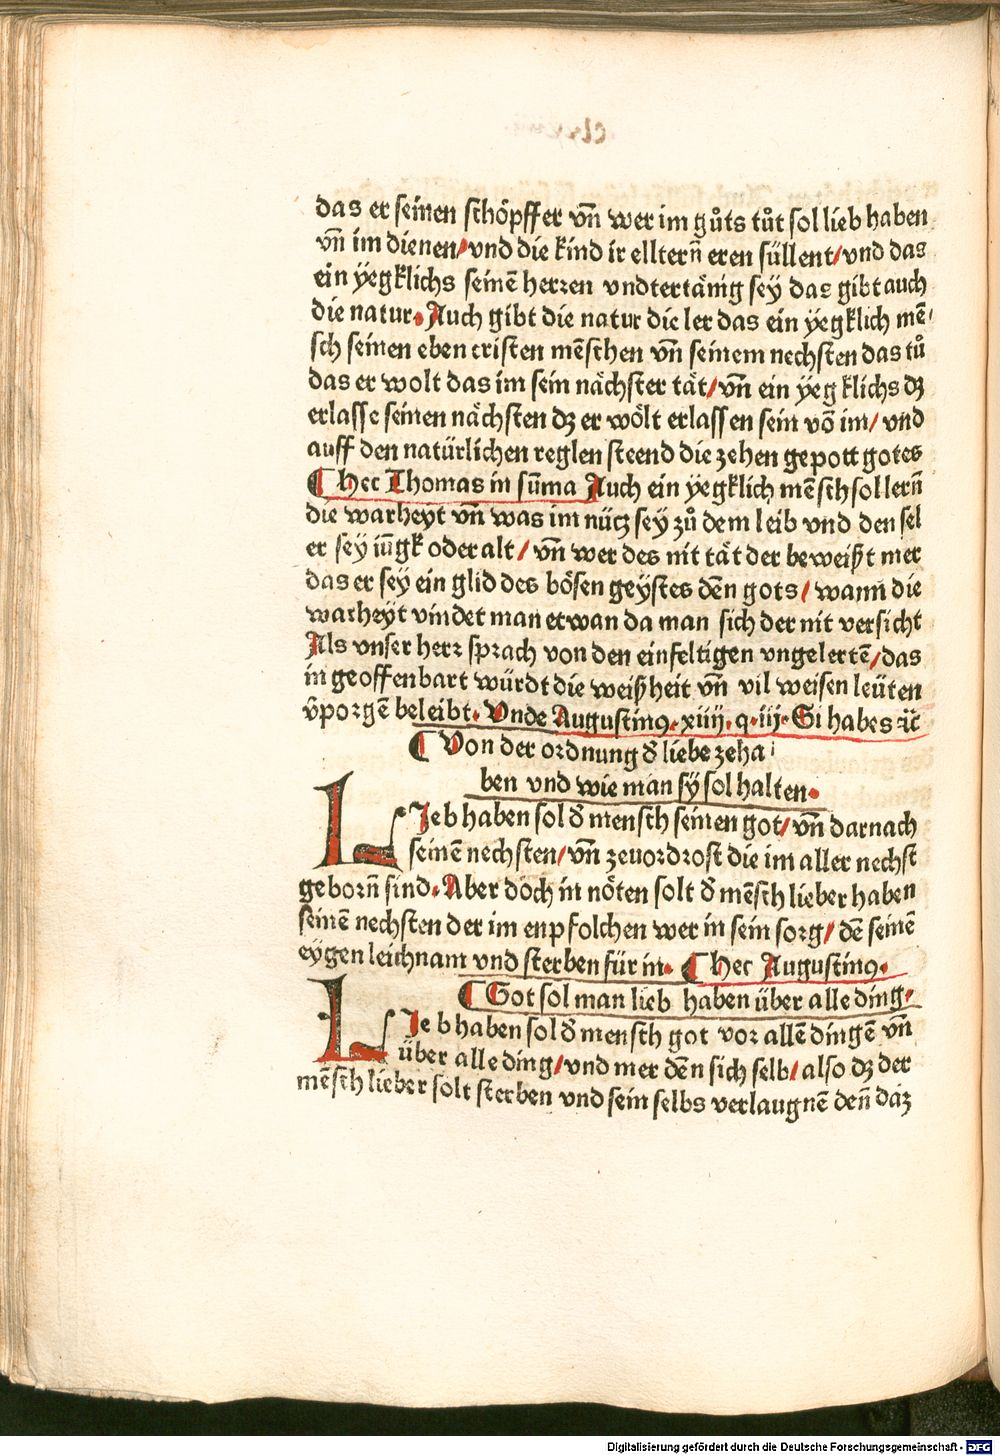 das er seinen schöpffer vn̄ wer im gůts tůt sol lieb haben
vn̄ im dienen/ vnd die kind ir elltern̄ eren süllent/ vnd das
ein yegklichs seinē herren vndtertänig sey das gibt auch
die natur. Auch gibt die natur die ler das ein yegklich mē-
sch seinen eben cristen mēschen vn̄ seinem nechsten das tů
das er wolt das im sein nächster tät/ vn̄ ein yegklichs dz
erlasse seinen nächsten dz er wölt erlassen sein vō im/ vnd
auff den natürlichen reglen steend die zehen gepott gotes
¶ hec Thomas in sūma Auch ein yegklich mēsch sol lern̄
die warheyt vn̄ was im nücz sey zů dem leib vnd den sel
er sey iūgk oder alt/ vn̄ wer des nit tät der beweißt mer
das er sey ein glid des bösen geystes dēn gots/ wann die
warheyt vindet man etwan da man sich der nit versicht
Als vnser herr sprach von den einfeltigen vngelertē/ das
in geoffenbart würdt die weißheit vn̄ vil weisen leüten
v̄porgē beleibt. Vnde Augustinꝯ. xiiij. q. iij. Si habes ꝛc̄
¶ Von der ordnung d̄ liebe zeha-
ben vnd wie man sy sol halten.
LJeb haben sol d̄ mensch seinen got/ vn̄ darnach
seinē nechsten/ vn̄ zeuordrost die im aller nechst
geborn̄ sind. Aber doch in nöten solt d̄ mēsch lieber haben
seinē nechsten der im enpfolchen wer in sein sorg/ dē seinē
eygen leichnam vnd sterben für in. ¶ hec Augustinꝯ.
¶ Got sol man lieb haben über alle ding.
LJeb haben sol d̄ mensch got vor allē dingē vn̄
über alle ding/ vnd mer dēn sich selb/ also dz der
mēsch lieber solt sterben vnd sein selbs verlaugnē den̄ daz
Digitalisierung gefördert durch die Deutsche Forschungsgemeinschaft - DFG